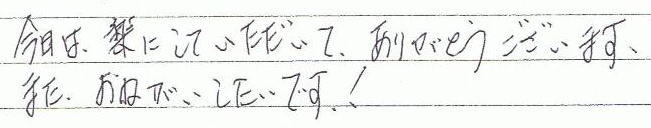 今日は、楽にしていただいて、ありがとうございます、
また、おねがいしたいです!